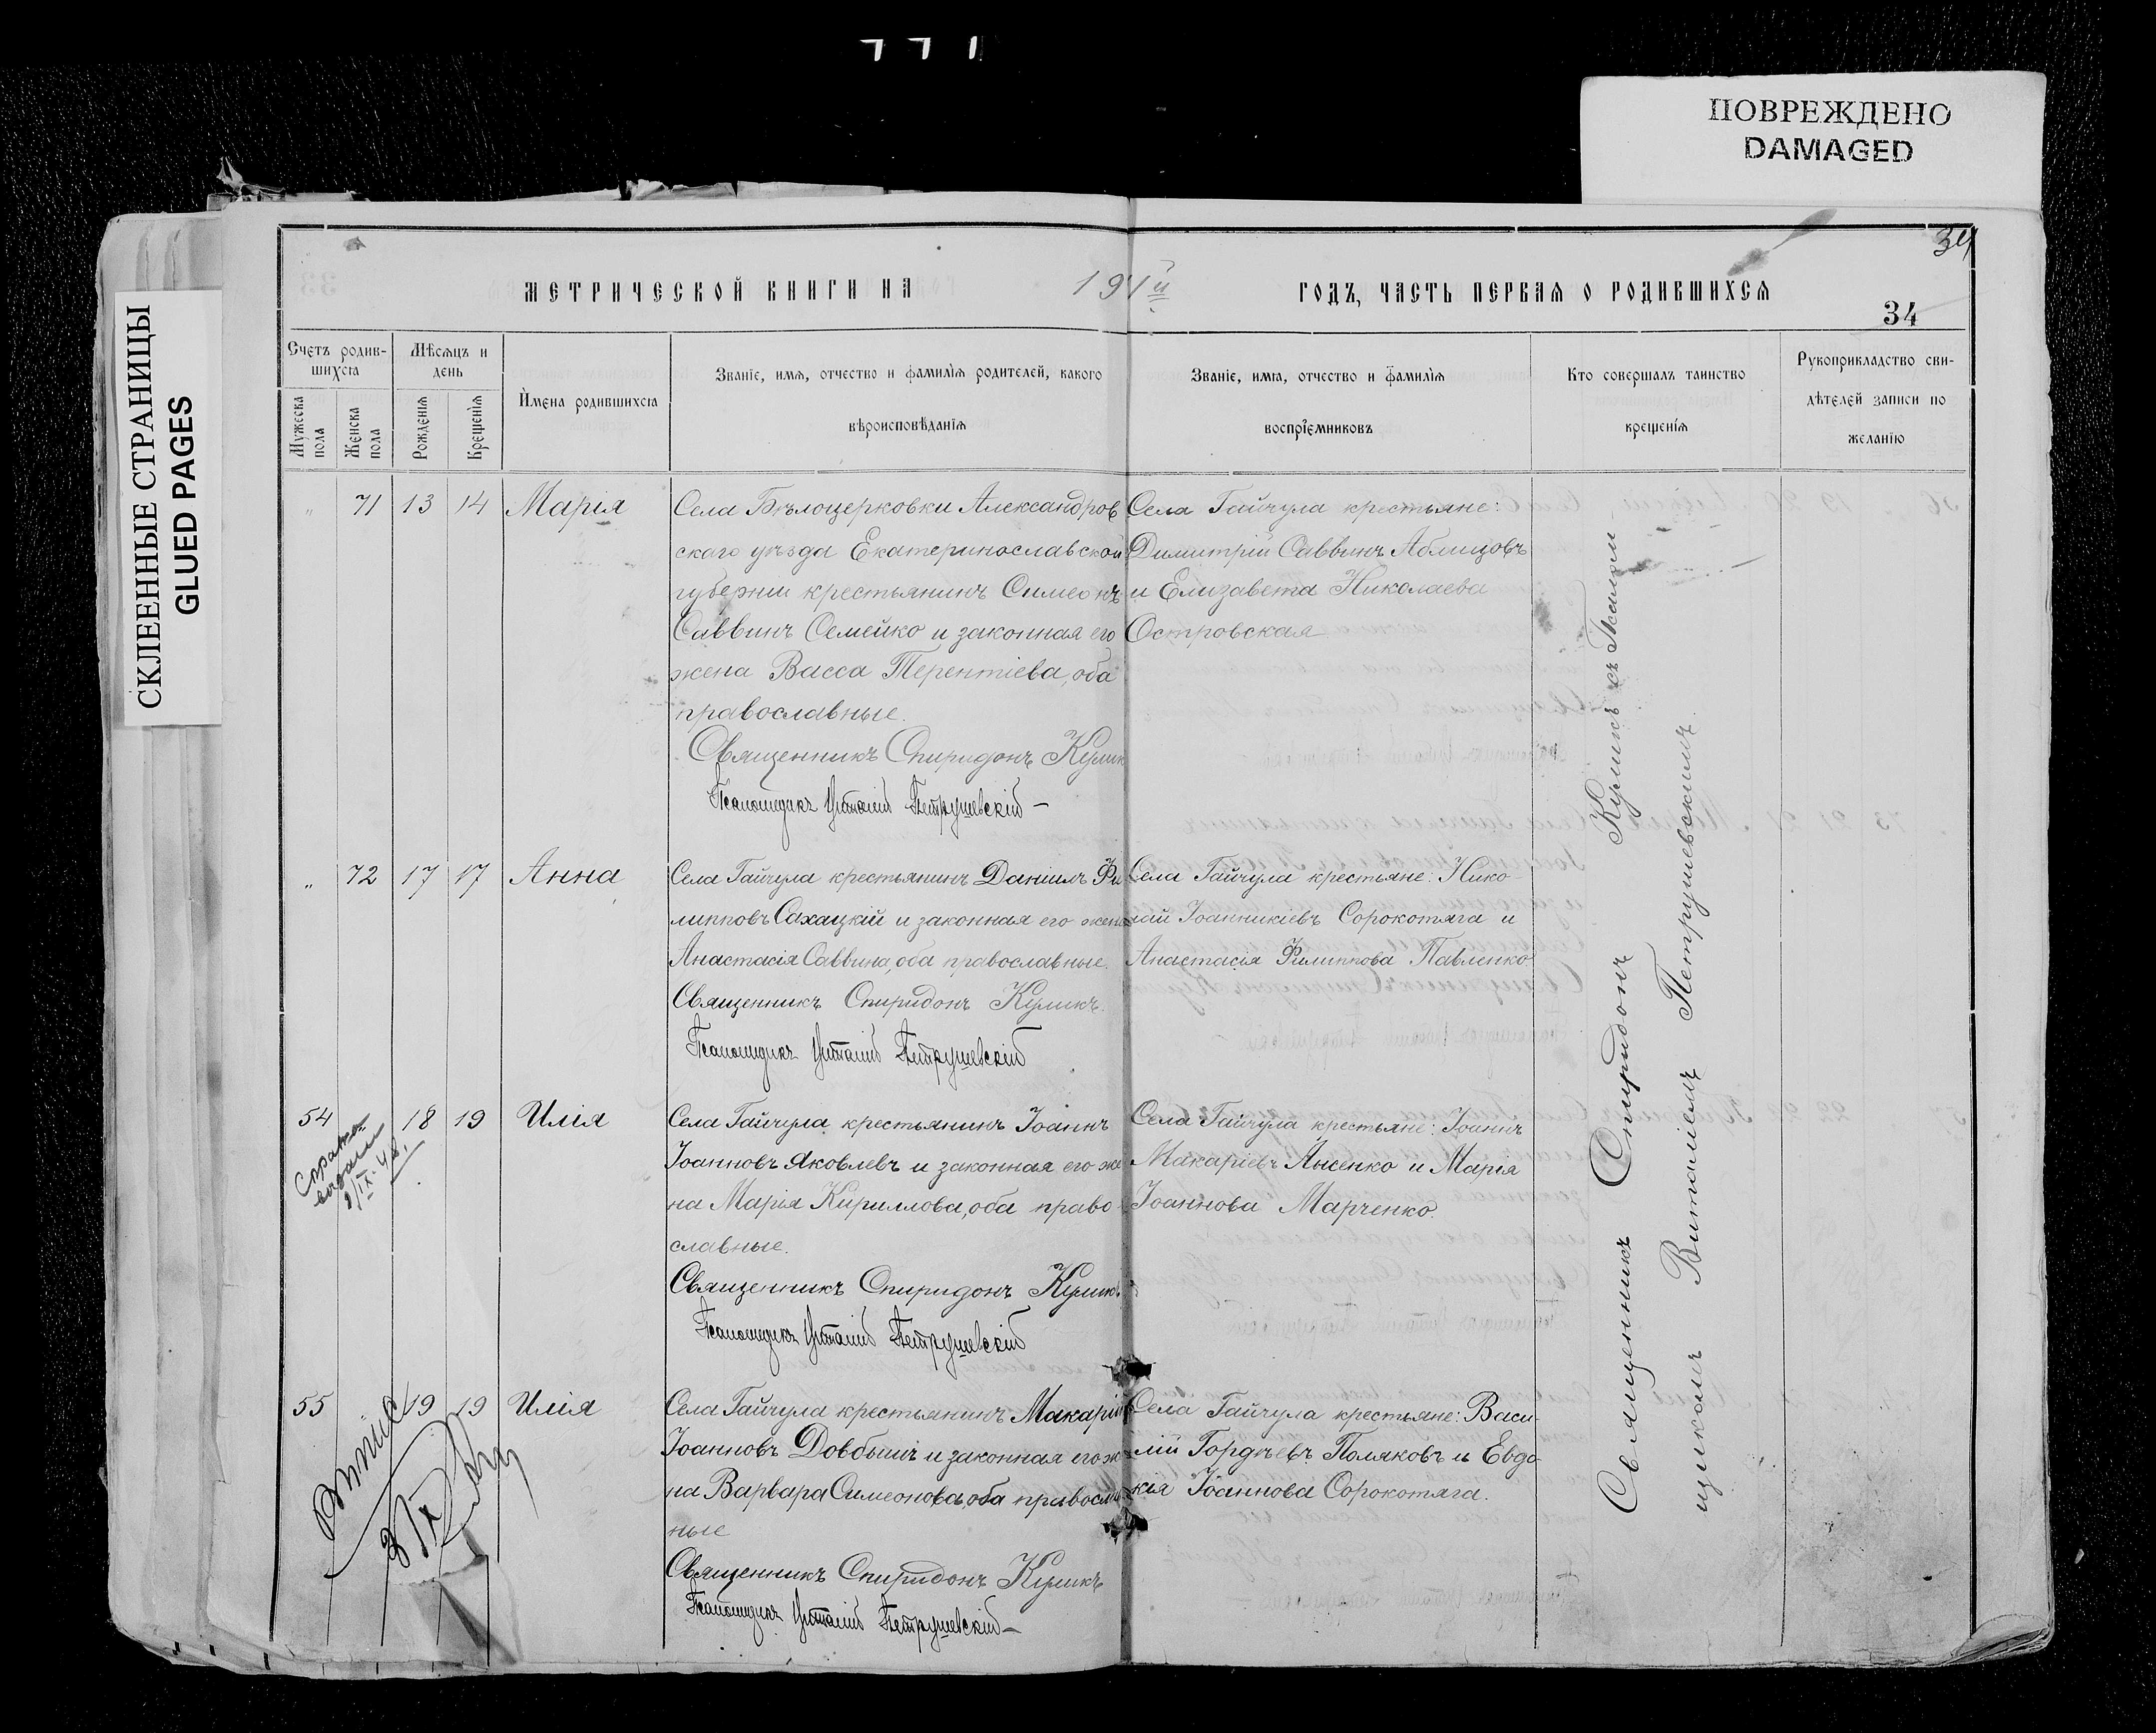 ПОВРЕЖДЕНО
DAMAGED
СКЛЕЕННЫЕ СТРАНИЦЫ
GLUED PAGES
34
МЕТРИЧЕСКОЙ КНИГИ НА
ГОДЪ, ЧАСТЬ ПЕРВАЯ О РОДИВШИХСЯ
34
Счетъ родив-
шихся
Мужеска
пола
Женска
пола
Мѣсяцъ и
день
Рожденія
Крещенія
Имена родившихся
Званіе, имя, отчество и фамилія родителей, какого
вѣроисповѣданія
Званіе, имя, отчество и фамилія
воспріемниковъ
Кто совершалъ таинство
крещенія
Рукоприкладство сви-
дѣтелей записи по
желанію
" 71 13 14 Марія
Села Бѣлоцерковки Александров
скаго уѣзда Екатеринославской
губерніи крестьянинъ Симеонъ
Саввинъ Семейко и законная его
жена Васса Терентіева, оба
православные.
Священникъ Спиридонъ Кулик
Псаломщикъ Виталій Петрушевскій
Села Гайчула крестьяне:
Димитрій Саввинъ Аблицовъ
и Елизавета Николаева
Островская
" 72 17 17 Анна
Села Гайчула крестьянинъ Даніилъ Фи
липповъ Сахацкій и законная его жена
Анастасія Саввина, оба православные.
Священникъ Спиридонъ Куликъ.
Псаломщикъ Виталій Петрушевскій
Села Гайчула крестьяне: Нико-
лай Іоанникіевъ Сорокотяга и
Анастасія Филиппова Павленко
54 18 19 Илія
Села Гайчула крестьянинъ Іоаннъ
Іоанновъ Яковлевъ и законная его же
на Марія Кириллова, оба право-
славные.
Священникъ Спиридонъ Куликъ
Псаломщикъ Виталій Петрушевскій
Села Гайчула крестьяне: Іоаннъ
Макаріевъ и Марія
Іоаннова Марченко.
55 19 19 Илія
Села Гайчула крестьянинъ Макарій
Іоанновъ Довбышъ и законная его же
на Варвара Симеонова, оба правосла
ные
Священникъ Спиридонъ Куликъ
Псаломщикъ Виталій Петрушевскій
Села Гайчула крестьяне: Васи-
лій Гордѣевъ Поляковъ и Евдо-
кія Іоаннова Сорокотяга.
Священникъ Спиридонъ Куликъ съ Псалом
щикомъ Виталіемъ Петрушевскимъ.